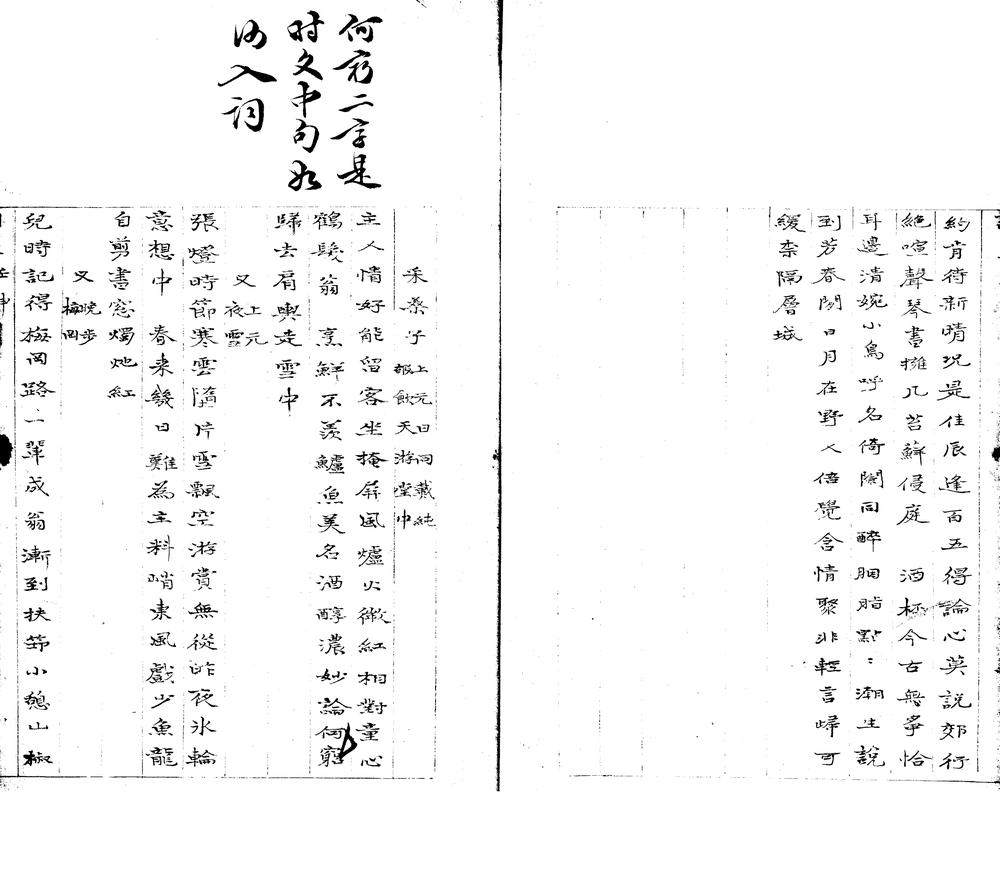 約肯待新晴況是佳辰逢百五得論心莫説郊行
絶喧聲琴書擁几苔蘚侵庭　酒極今古無爭恰
耳邊清婉小鳥呼名倚闌同醉胭脂點〻潮生説
到芳春閑日月在野人倍覺含情聚非輕言歸可
緩柰隔層城
何窮二字是
时文中句如
何入词
采桑子上元日同戴純
報飲天游堂中
主人情好能留客坐掩屏風爐火微紅相對童心
鶴髮翁　烹鮮不羨鱸魚美名酒醇濃妙論何窮
歸去肩輿走雪中
又上元
夜雪
張燈時節寒雲墮片雪飄空游賞無從昨夜氷輪
意想中　春来幾日難為主料峭東風戲少魚龍
自剪書窓燭灺紅
又晩步
梅岡
兒時記得梅岡路一輩成翁漸到扶筇小憩山椒